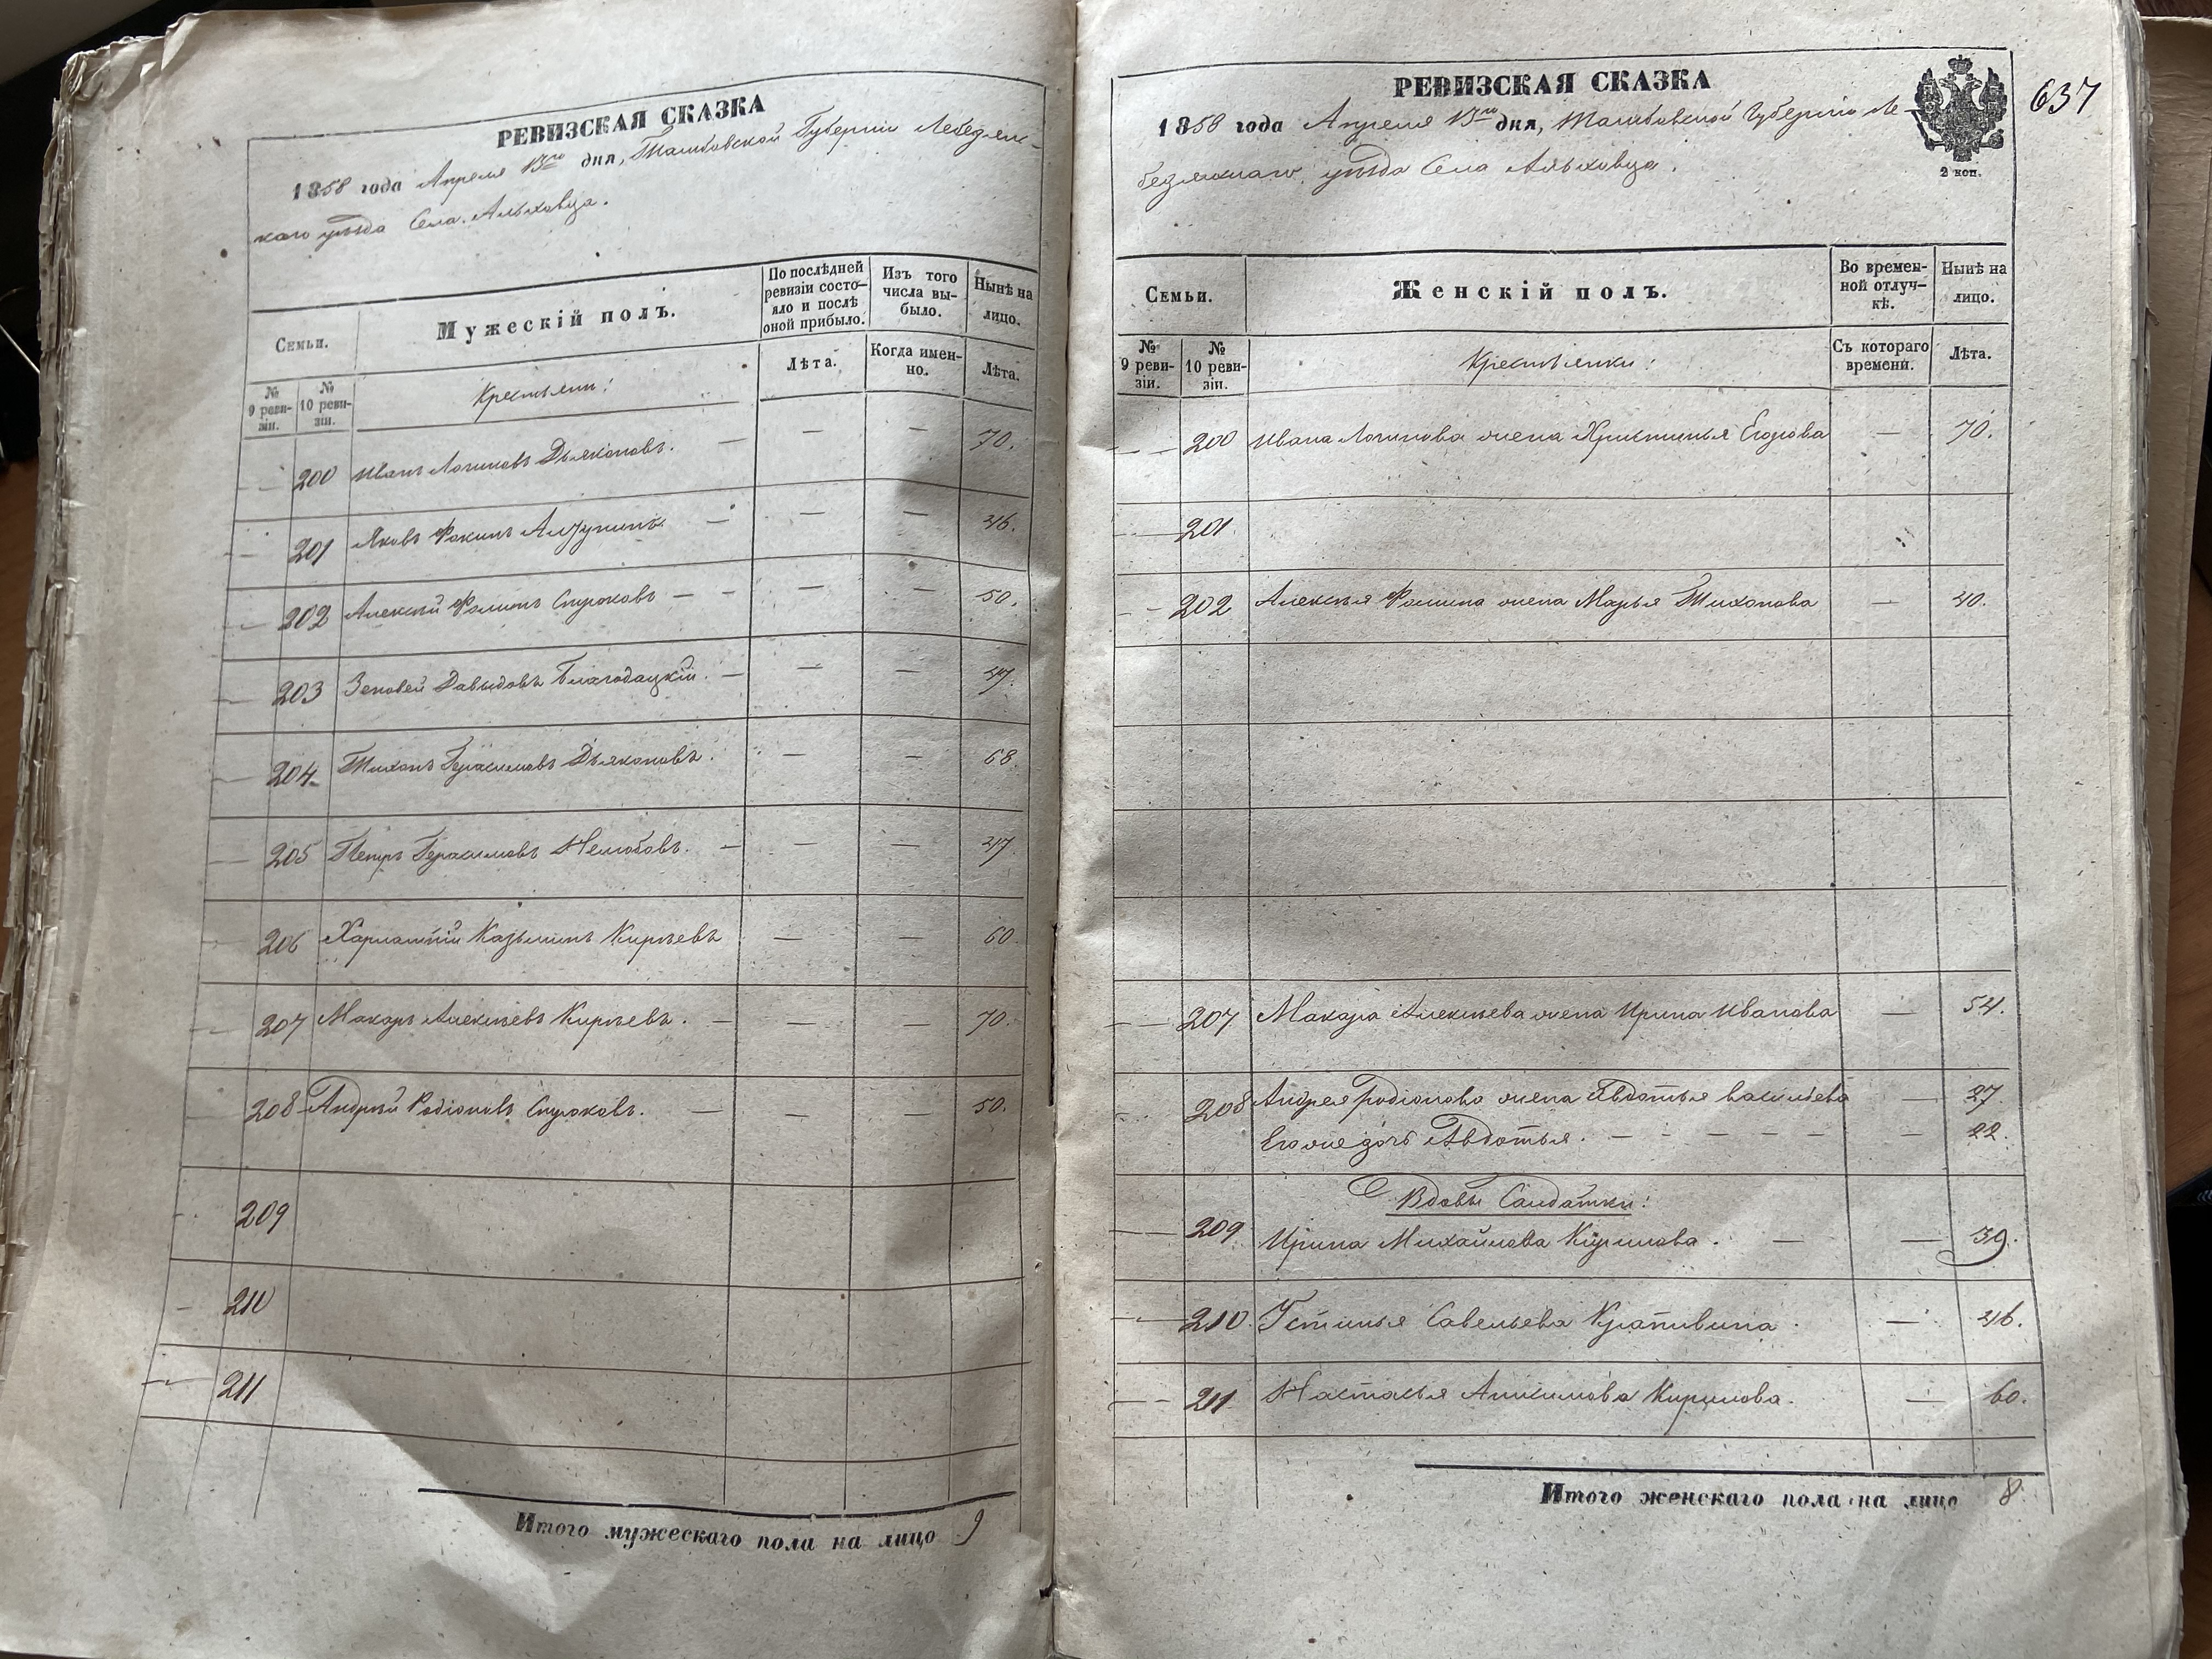 РЕВИЗСКАЯ СКАЗКА
1858 года Апреля 15го дня, Тамбовской Губернiи Лебедян-
скаго уѣзда Села Альховца.
Семьи.
Мужескiй полъ.
По послѣдней ревизiи состо-яло и послѣ оной прибыло.
Изъ того числа вы-было.
Нынѣ на лицо.
№ 9 реви-зiи.
№ 10 реви-зiи.
Крестьяни:
Лѣта.
Когда имен-но.
Лѣта.
— 200 Иванъ Логиновъ Дьяконовъ. — — — 70.
— 201 Яковъ Фокинъ — — — 46.
— 202 Алексѣй Фоминъ Спуроковъ — — — — 50.
— 203 Зеновей Давыдовъ Благодацкiй. — — — 47.
— 204 Тихонъ Герасимовъ Дьяконовъ. — — 68.
— 205 Петръ Герасимовъ Нелюбовъ. — — — 47.
— 206 Харлампiй Казьминъ Кирѣевъ — — 60.
— 207 Макаръ Алексѣевъ Кирѣевъ. — — — 70.
— 208 Андрѣй Родiоновъ Спуроковъ. — — — 50.
— 209
— 210
— 211
Итого мужескаго пола на лицо 9
РЕВИЗСКАЯ СКАЗКА
637
1858 года Апреля 15го дня, Тамбовской Губернiи Ле-
бедянскаго уѣзда Села Альховца.
2 коп.
Семьи.
Женскiй полъ.
Во времен-ной отлуч-кѣ.
Нынѣ на лицо.
№ 9 реви-зiи.
№ 10 реви-зiи.
Крестьянки:
Съ котораго времени.
Лѣта.
— 200 Ивана Логинова жена Христинья Егорова — 70.
— 201
— 202 Алексѣя Фомина жена Марья Тихонова — 40.
— 207 Макара Алексѣева жена Ирина Иванова — 54.
— 208 Андрея Родiонова жена Авдотья Васильева — 27
Его же дочь Авдотья. — — — — — — 22.
Вдовы Салдатки:
— 209 Ирина Михайлова Курилова. — — 39.
— 210 Устинья Савельева Крапивина. — 46.
— 211 Настасья Анисимова Кирилова. — 60.
Итого женскаго пола на лицо 8.